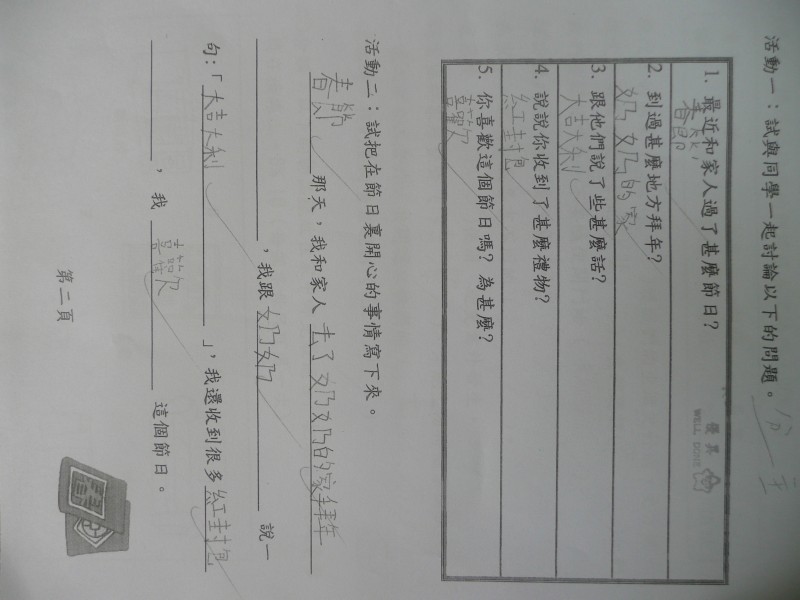 活動一：試與同學一起討論以下的問題。
優異
WELL DONE
1. 最近和家人過了甚麼節日？
春節
2. 到過甚麼地方拜年？
奶奶的家
3. 跟他們說了些甚麼話？
大吉大利
4. 說說你收到了甚麼禮物？
紅封包
5. 你喜歡這個節日嗎？為甚麼？
喜歡
活動二：試把在節日裏開心的事情寫下來。
春節 那天，我和家人 去了奶奶的家拜年
，我跟 奶奶 說一
句：「 大吉大利 」，我還收到很多 紅封包
，我 喜歡 這個節日。
第二頁